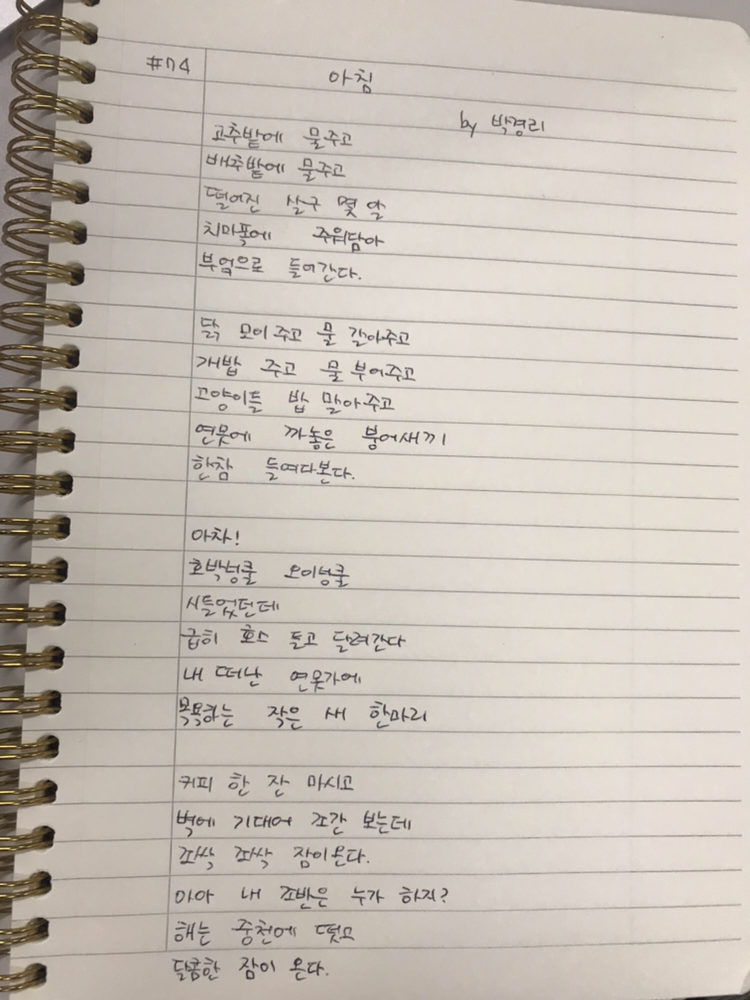 #74
아침
by 박경리
고추밭에 물주고
배추밭에 물주고
떨어진 살구 몇 알
치마폭에 주워담아
부엌으로 들어간다.
닭 모이 주고 물 갈아주고
개밥 주고 물 부어주고
고양이들 밥 말아주고
연못에 까놓은 붕어새끼
한참 들여다본다.
아차!
호박넝쿨 오이넝쿨
시들었던데
급히 호스 들고 달려간다
내 떠난 연못가에
목욕하는 작은 새 한마리
커피 한 잔 마시고
벽에 기대어 조간 보는데
조싹 조싹 잠이온다.
아아 내 조반은 누가 하지?
해는 중천에 떴고
달콤한 잠이 온다.